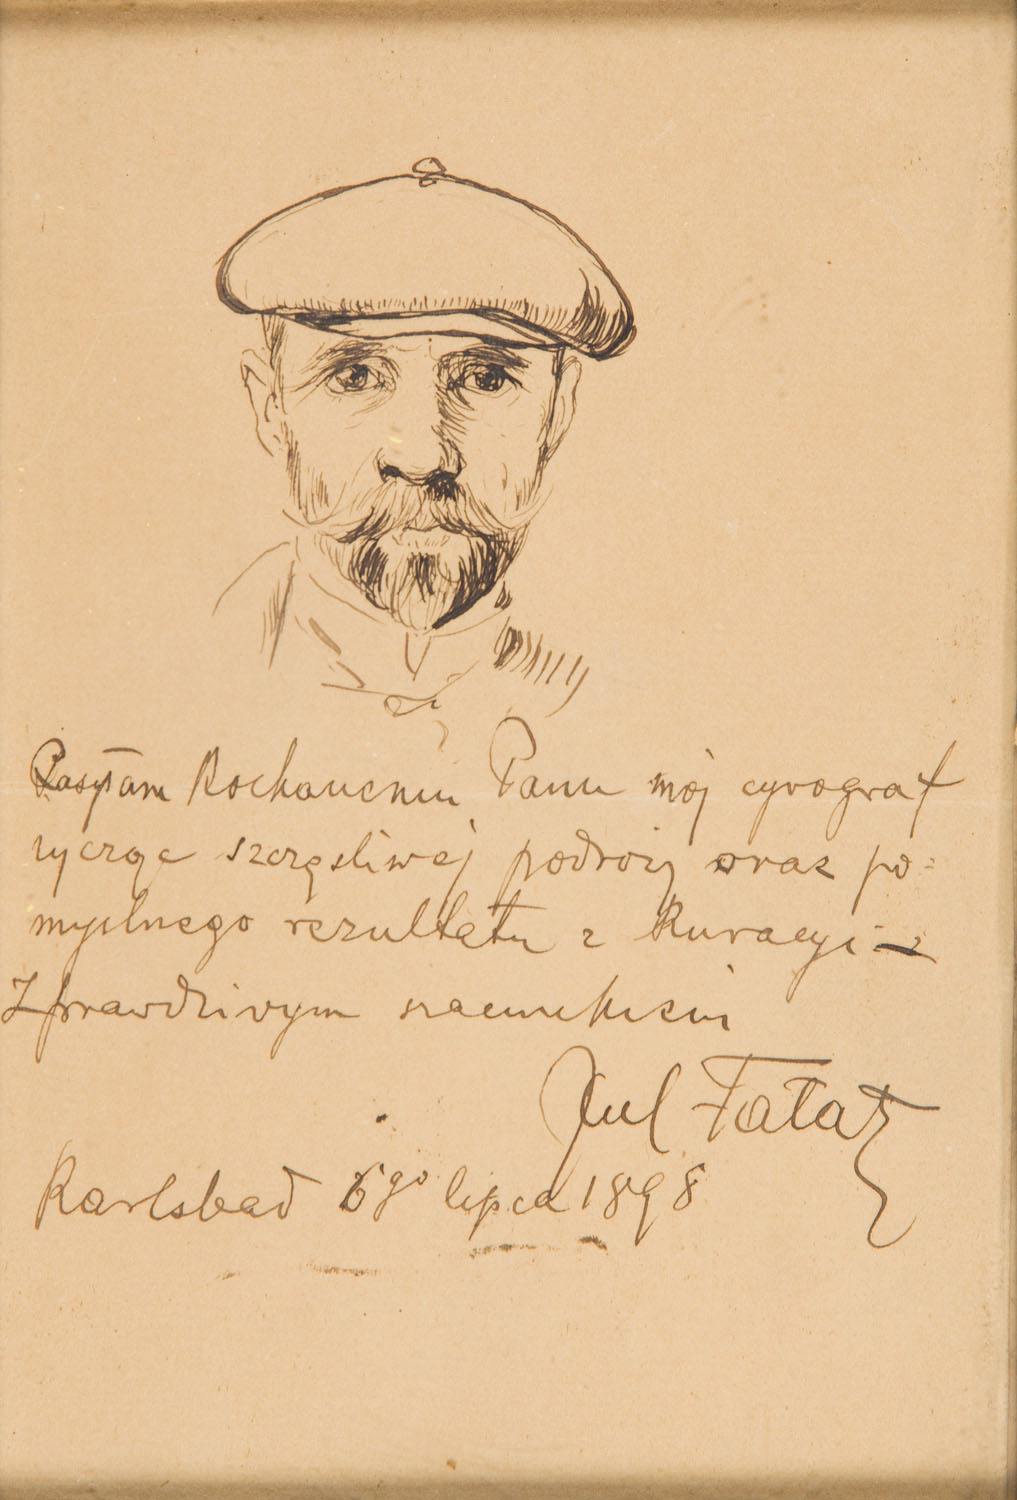 Pasyłam Kochanemu Panu mój cyrograf
życząc szczęśliwej podróży oraz po=
myślnego rezultatu z Kuracyi – z
Z prawdziwym szacunkiem
Jul Fałat
Karlsbad 6go lipca 1898